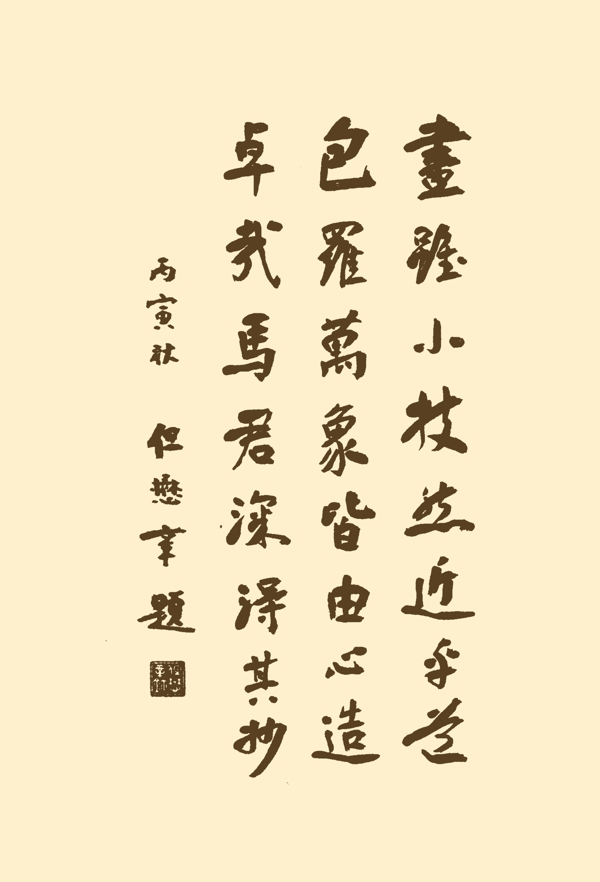 畫雖小技然近乎道
包羅萬象皆由心造
卓哉馬君深得其妙
丙寅秋 但懋辛題